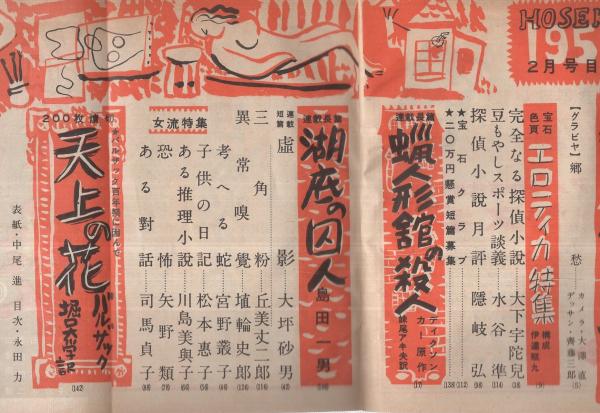 HOSEK
195
2月号目
【グラビヤ】郷愁 カメラ・大滝直 デッサン・齊藤三郎 (5)
宝石色頁 エロティカ特集 構成 伊達龍九 (9)
完全なる探偵小説 大下宇陀兒
豆もやしスポーツ談義 水谷準
探偵小説月評 隱岐弘
★宝石クラブ (112)
★二〇万円懸賞短篇募集 (138)
連載長篇 蝋人形館の殺人 ディクソン・カー原作 妹尾アキ夫訳
連載長篇 湖底の囚人 島田一男
連載短篇 虚影 大坪砂男
三角粉 丘美丈二郎
異常嗅覺 埴輪史郎
女流特集
考へる蛇 宮野叢子
子供の日記 松本惠子
ある推理小説 川島美與子
恐怖 矢野類
ある對話 司馬貞子
200枚讀切
バルザック百年祭に因んで
天上の花 バルザック 堀口大学訳 (142)
表紙・中尾進 目次・永田力